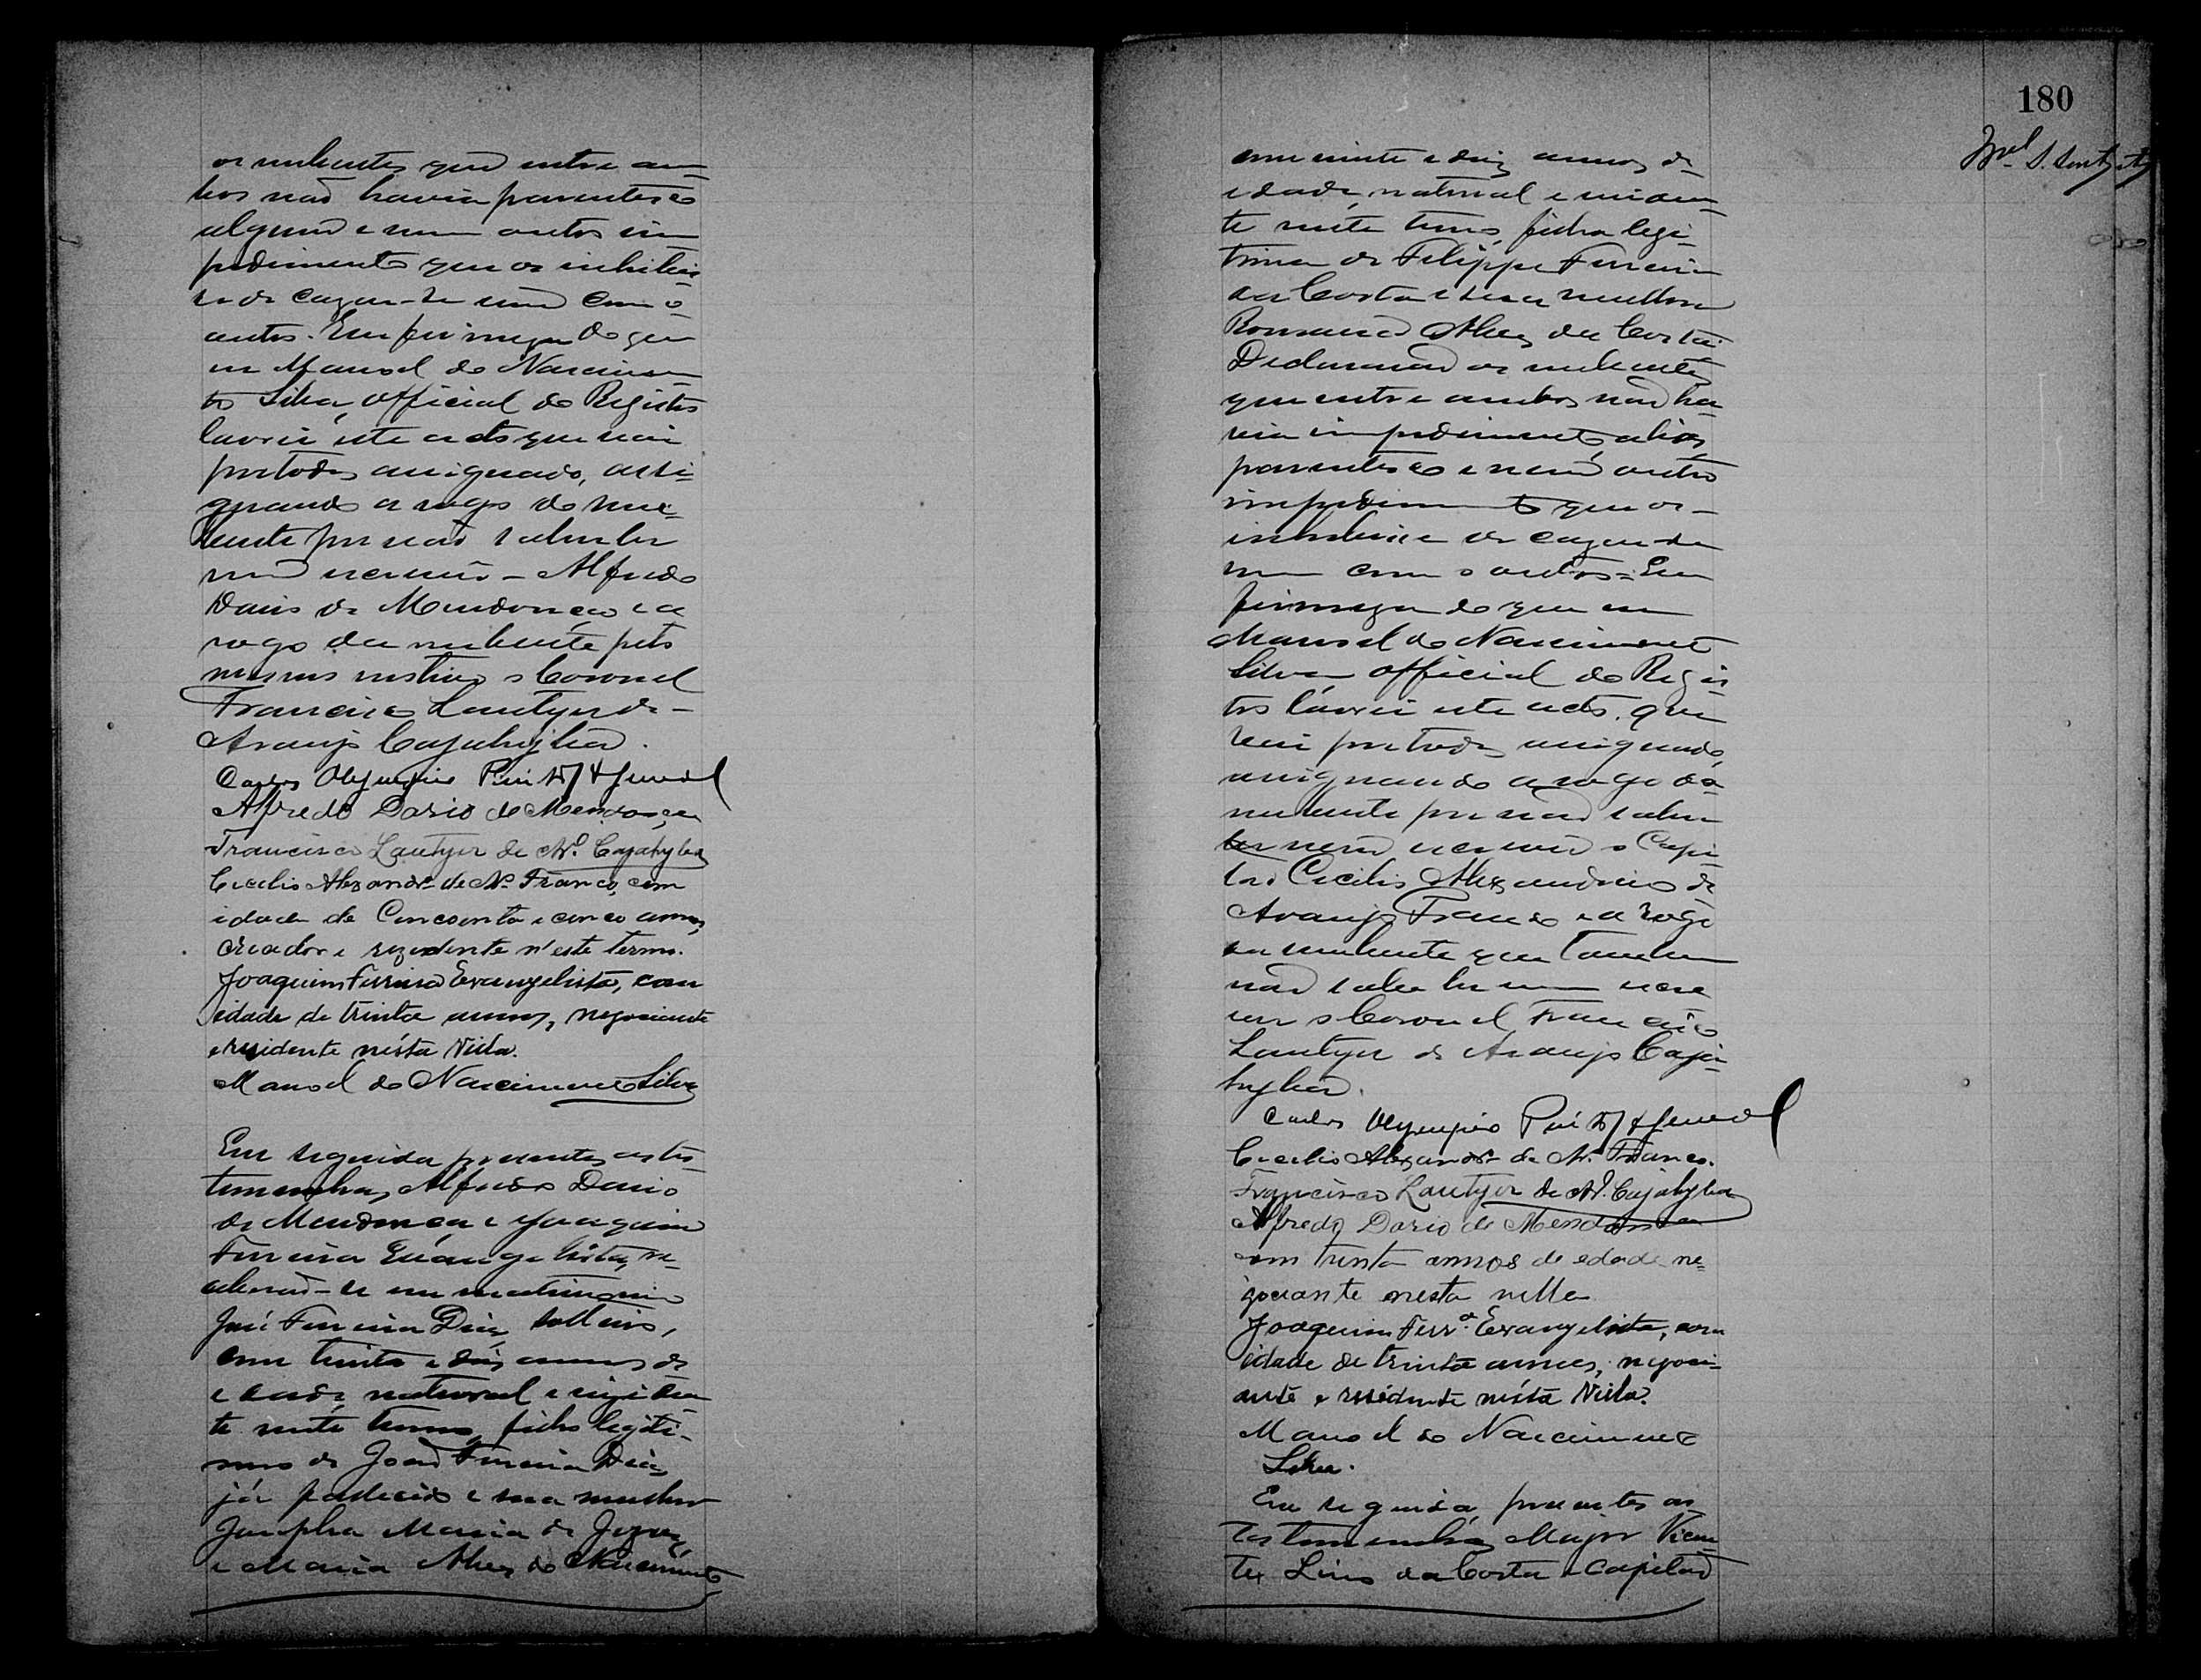 os nubentes que entre am-
bos não havia parentesco
algum e nem outro im
pedimento que os inhibis
se de cazar-se um com o
outro. Em firmeza do que
eu Manoel do Nascimen
to Silva, official do Registro
lavrei este acto que vai
por todos assignado, assi-
gnando a rogo do nu-
bente por não saber ler
nem escrever - Alfredo
Dario de Mendonça e a
rogo da nubente pelo
mesmo motivo o Coronel
Francisco Lantyer de
Araujo Cajahyba.
Carlos Olympio
Alfredo Dario de Mendonça
Francisco Lantyer de Ar.º Cajahyba
Cecilio Alexandr.e de Ar.º Franco, com
idade de Cincoenta e cinco annos,
Creador e rezidente n'este termo.
Joaquim Ferreira Evangelista, com
idade de trinta annos, negociante
e residente nésta Villa.
Manoel do Nascimento Silva
Em seguida presentes as tes-
temunhas, Alfredo Dario
de Mendonça e Joaquim
Ferreira Evangelista, re-
ceberão-se em matrimonio
José Ferreira Dias, solteiro,
com trinta e dois annos de
edade, natural e reziden
te neste termo, filho legiti-
mo de João Ferreira Dias,
já fallecido e sua mulher
Josepha Maria de Jezus,
e Maria Alves do Nascimento
180
com vinte e dois annos de
edade, natural e residen
te neste termo, filha legi-
tima de Filippe Ferreira
da Costa e sua mulher
Romana Alves da Costa.
Declararão os nubentes
que entre ambos não ha
via impedimento, aliás,
parentesco e nem outro
impedimento que os
inhibisse de cazar-se
um com o outro. Em
firmeza do que eu
Manoel do Nascimento
Silva official do Regis
tro lavrei este acto, que
vai por todos assignado,
assignando a rogo do
nubente por não saber
ler nem escrever o Capi
tão Cecilio Alexandrino de
Araujo Franco e a rogo
da nubente que tambem
não sabe ler nem escre
ver o Coronel Francisco
Lantyer de Araujo Caja-
hyba.
Carlos Olympio
Cecilio Alexandr.e de Ar.º Franco.
Francisco Lantyer de Ar.º Cajahyba
Alfredo Dario de Mendonça
com trinta annos de edade ne-
gociante nesta villa
Joaquim Ferr.ª Evangelista, com
idade de trinta annos, negoci-
ante e residente nésta Villa.
Manoel do Nascimento
Silva.
Em seguida, presentes as
testemunhas Major Vicen-
te Lins da Costa e Capitão